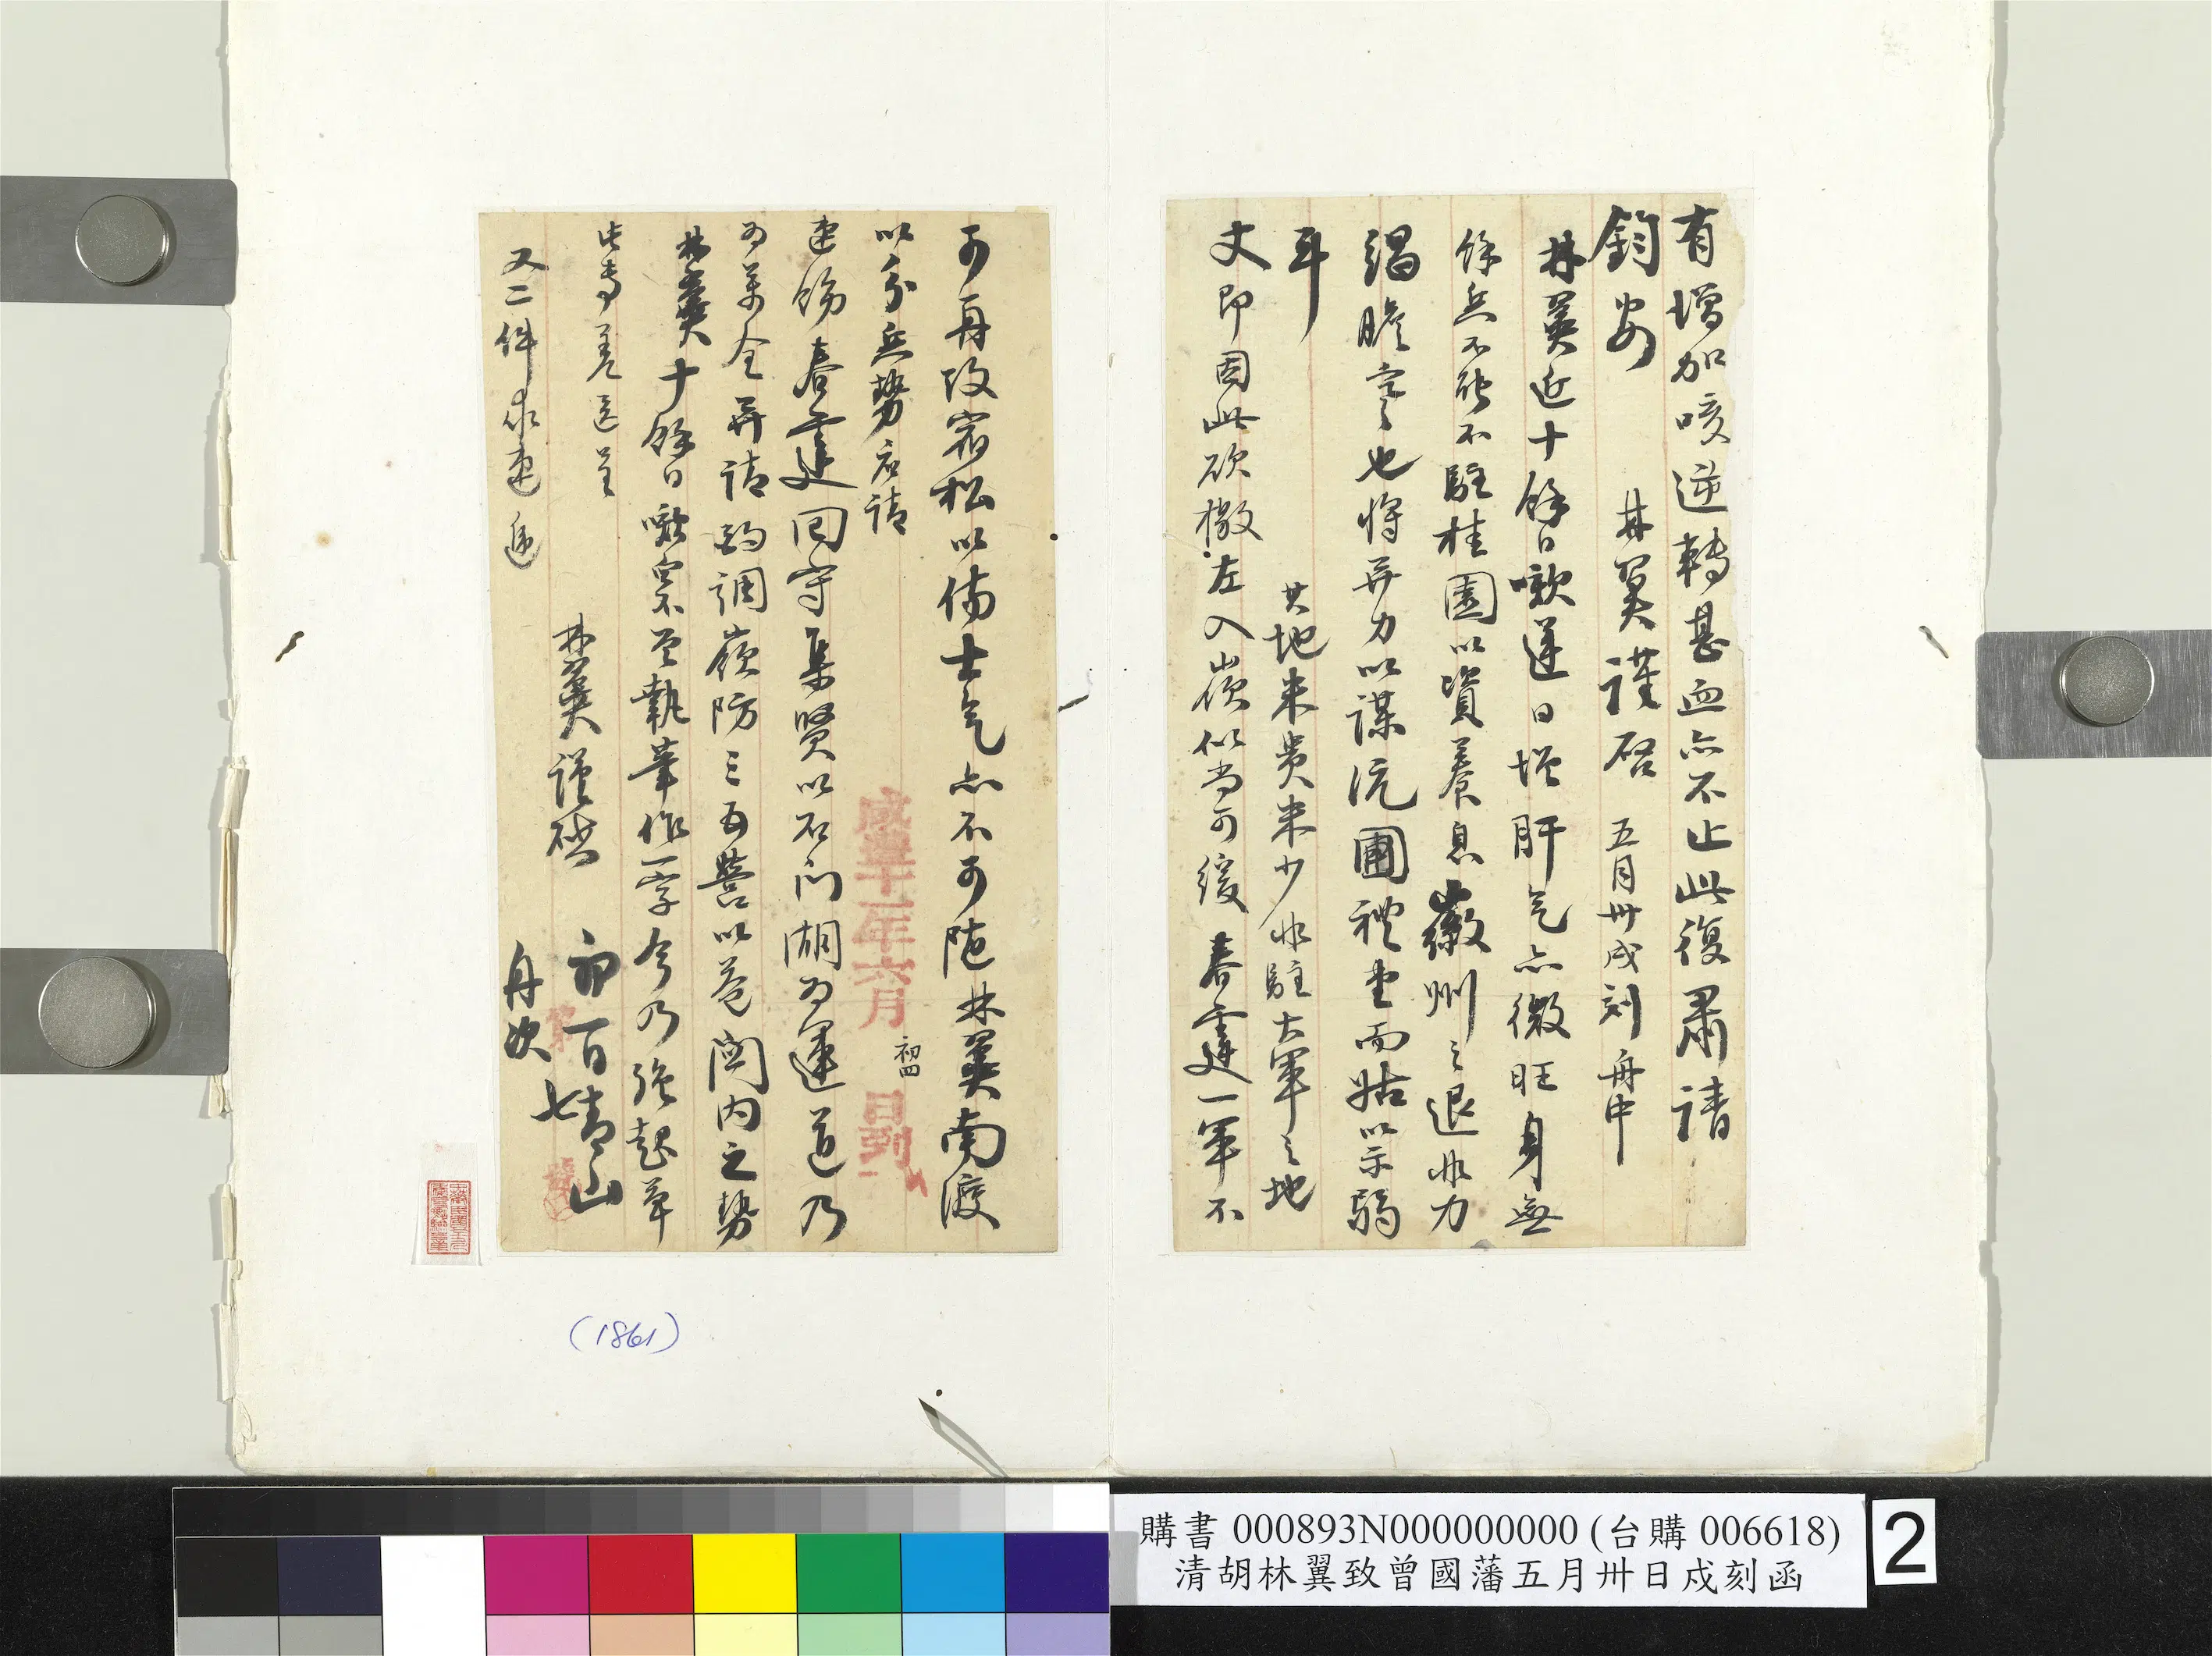 有增加咳逆轉甚血亦不止此復肅請
鈞安 林翼謹啓 五月卅戌刻舟中
林翼近十餘日嗽逆日增肝气亦微旺身無
餘兵不能不駐桂園以資養息徽州之退非力
竭瞻寒也將弃力以謀浣圃禮堂而姑以示弱
耳 其地米貴米少非駐大軍之地
丈即因此砍撤左入嶺似尚可緩 春霆一軍不
可再攻宿松以傷士气亦不可陁林翼南渡
以分兵勢应請
速飭春霆回守集賢以石门湖为運道乃
为萬全弃請酌調嶺防三五營以益關内之勢
林翼十餘日嗽累不曾執筆作一字今乃強起草
此專差送呈
林翼謹啓 初一日青山
又二件求速遞 舟次 七
咸豐十一年六月 初四 日到
(1861)
購書 000893N000000000 (台購 006618)
清胡林翼致曾國藩五月卅日戍刻函
2